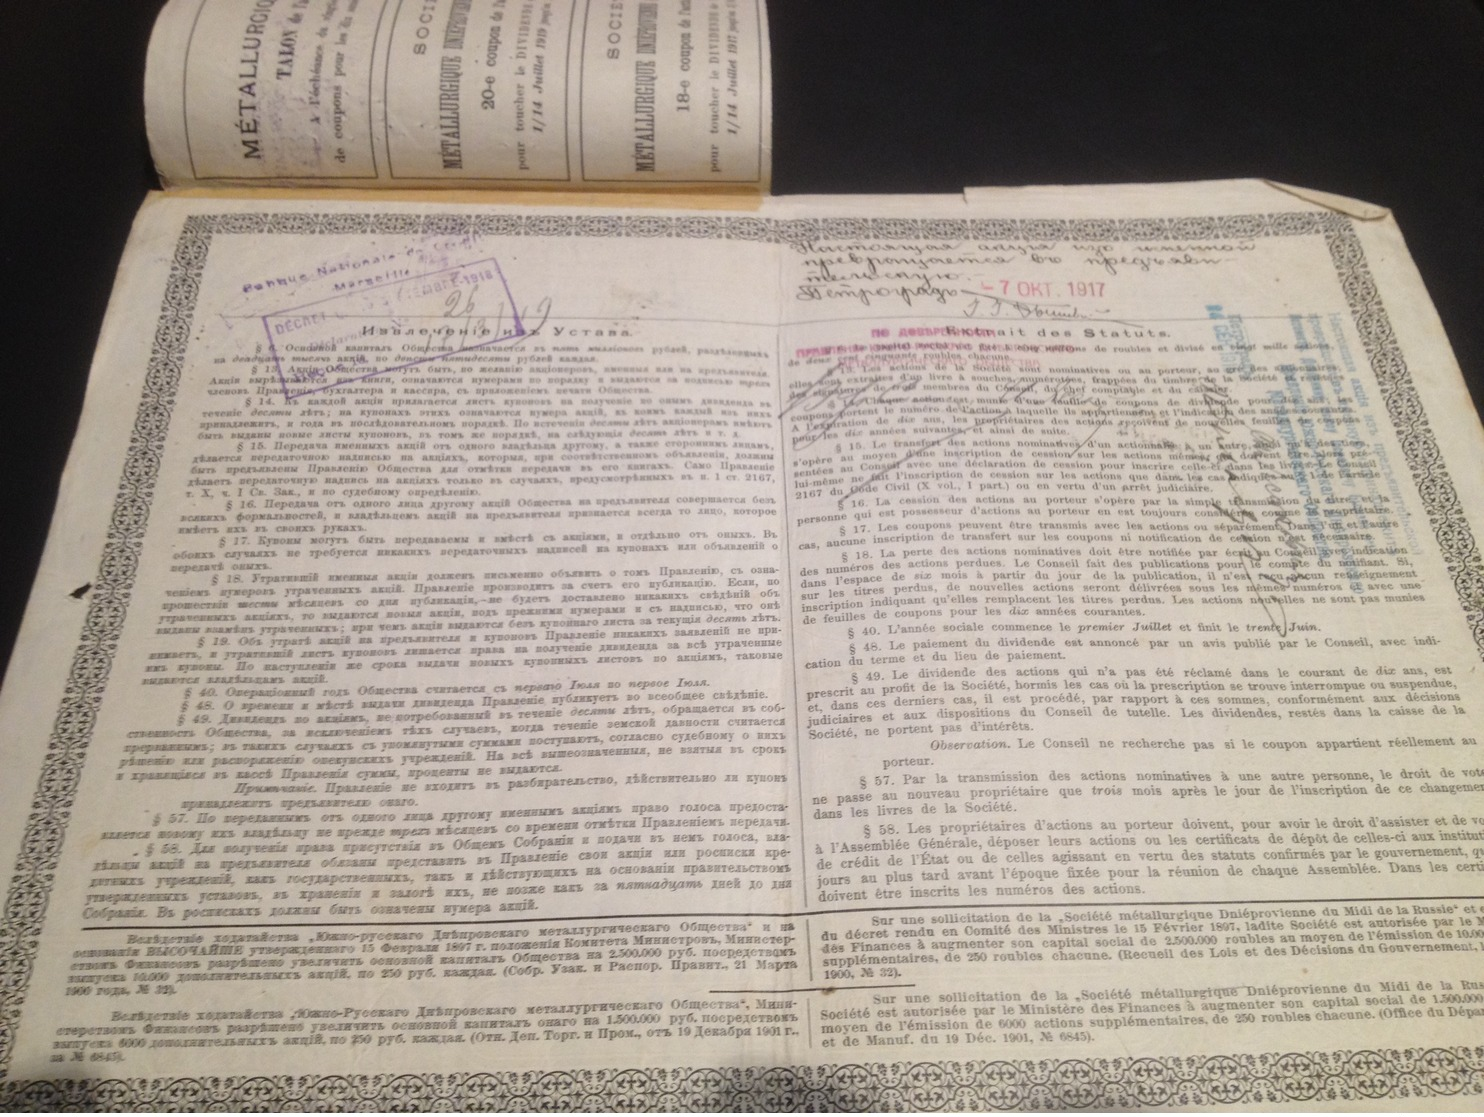 MÉTALLURGIQ
TALON de l'a
à l'échéance du
de coupons pour les dix
SOCIÉ
MÉTALLURGIQUE DNIÉPROVIENNE
20-e coupon de l'acti
pour toucher le DIVIDENDE
1/14 Juillet 1919
SOCIÉ
MÉTALLURGIQUE DNIÉPROVIENNE
18-e coupon de l'acti
pour toucher le DIVIDENDE
1/14 Juillet 1917
Banque Nationale de Crédit
Marseille
DÉCRET
1918
Настоящая акція изъ именной
превращается въ предъяви-
тельскую.
Петроградъ - 7 ОКТ. 1917
ПО ДОВѢРЕННОСТИ
Извлеченіе изъ Устава.
§ 6. Основной капиталъ Общества назначается въ пять милліоновъ рублей, раздѣленныхъ
на двадцать тысячъ акцій, по двѣсти пятидесяти рублей каждая.
§ 13. Акціи Общества могутъ быть, по желанію акціонеровъ, именныя или на предъявителя.
Акціи вырѣзываются изъ книги, означаются нумерами по порядку и выдаются за подписью трехъ
членовъ Правленія, бухгалтера и кассира, съ приложеніемъ печати Общества.
§ 14. Къ каждой акціи прилагается листъ купоновъ на полученіе по онымъ дивиденда въ
теченіе десяти лѣтъ; на купонахъ этихъ означаются нумера акцій, къ коимъ каждый изъ нихъ
принадлежитъ, и года въ послѣдовательномъ порядкѣ. По истеченіи десяти лѣтъ акціонерамъ имѣютъ
быть выданы новые листы купоновъ, въ томъ же порядкѣ, на слѣдующія десять лѣтъ и т. д.
§ 15. Передача именныхъ акцій отъ одного владѣльца другому, а также стороннимъ лицамъ,
дѣлается передаточною надписью на акціяхъ, которыя, при соотвѣтственномъ объявленіи, должны
быть предъявлены Правленію Общества для отмѣтки передачи въ его книгахъ. Само Правленіе
дѣлаетъ передаточную надпись на акціяхъ только въ случаяхъ, предусмотрѣнныхъ въ п. 1 ст. 2167,
т. X, ч. I Св. Зак., и по судебному опредѣленію.
§ 16. Передача отъ одного лица другому акцій Общества на предъявителя совершается безъ
всякихъ формальностей, и владѣльцемъ акцій на предъявителя признается всегда то лицо, которое
имѣетъ ихъ въ своихъ рукахъ.
§ 17. Купоны могутъ быть передаваемы и вмѣстѣ съ акціями, и отдѣльно отъ оныхъ. Въ
обоихъ случаяхъ не требуется никакихъ передаточныхъ надписей на купонахъ или объявленій о
передачѣ оныхъ.
§ 18. Утратившій именныя акціи долженъ письменно объявить о томъ Правленію, съ озна-
ченіемъ нумеровъ утраченныхъ акцій. Правленіе производитъ за счетъ его публикацію. Если, по
прошествіи шести мѣсяцевъ со дня публикаціи, не будетъ доставлено никакихъ свѣдѣній объ
утраченныхъ акціяхъ, то выдаются новыя акціи, подъ прежними нумерами и съ надписью, что онѣ
выданы взамѣнъ утраченныхъ; при чемъ акціи выдаются безъ купоннаго листа за текущія десять лѣтъ.
§ 19. Объ утратѣ акцій на предъявителя и купоновъ Правленіе никакихъ заявленій не при-
нимаетъ, и утратившій листъ купоновъ лишается права на полученіе дивиденда за всѣ утраченные
имъ купоны. По наступленіи же срока выдачи новыхъ купонныхъ листовъ по акціямъ, таковые
выдаются владѣльцамъ акцій.
§ 40. Операціонный годъ Общества считается съ перваго Іюля по первое Іюля.
§ 48. О времени и мѣстѣ выдачи дивиденда Правленіе публикуетъ во всеобщее свѣдѣніе.
§ 49. Дивидендъ по акціямъ, не потребованный въ теченіе десяти лѣтъ, обращается въ соб-
ственность Общества, за исключеніемъ тѣхъ случаевъ, когда теченіе земской давности считается
прерваннымъ; въ такихъ случаяхъ съ упомянутыми суммами поступаютъ, согласно судебному о нихъ
рѣшенію или распоряженію опекунскихъ учрежденій. На всѣ вышеозначенныя, не взятыя въ срокъ
и хранящіяся въ кассѣ Правленія суммы, проценты не выдаются.
Примѣчаніе. Правленіе не входитъ въ разбирательство, дѣйствительно ли купонъ
принадлежитъ предъявителю онаго.
§ 57. По переданнымъ отъ одного лица другому именнымъ акціямъ право голоса предоста-
вляется новому ихъ владѣльцу не прежде трехъ мѣсяцевъ со времени отмѣтки Правленіемъ передачи.
§ 58. Для полученія права присутствія въ Общемъ Собраніи и подачи въ немъ голоса, вла-
дѣльцы акцій на предъявителя обязаны представить въ Правленіе свои акціи или росписки кре-
дитныхъ учрежденій, какъ государственныхъ, такъ и дѣйствующихъ на основаніи правительствомъ
утвержденныхъ уставовъ, въ храненіи и залогѣ ихъ, не позже какъ за пятнадцать дней до дня
Собранія. Въ роспискахъ должны быть означены нумера акцій.
Вслѣдствіе ходатайства „Южно-русскаго Днѣпровскаго металлургическаго Общества“ и на
основаніи ВЫСОЧАЙШЕ утвержденнаго 15 Февраля 1897 г. положенія Комитета Министровъ, Министер-
ствомъ Финансовъ разрѣшено увеличить основной капиталъ Общества на 2.500.000 руб. посредствомъ
выпуска 10.000 дополнительныхъ акцій, по 250 руб. каждая. (Собр. Узак. и Распор. Правит., 21 Марта
1900 года, № 32).
Вслѣдствіе ходатайства „Южно-Русскаго Днѣпровскаго металлургическаго Общества“, Мини-
стерствомъ Финансовъ разрѣшено увеличить основной капиталъ онаго на 1.500.000 руб. посредствомъ
выпуска 6000 дополнительныхъ акцій, по 250 руб. каждая. (Отн. Деп. Торг. и Пром., отъ 19 Декабря 1901 г.,
за № 6845).
Extrait des Statuts.
de deux cent cinquante roubles chacune.
§ 13. Les actions de la Société sont nominatives ou au porteur, au
elles sont extraites d'un livre à souches, numérotées, frappées du timbre de la Société et revêtues
des signatures de trois membres du Conseil, du chef comptable et du caissier.
coupons portent le numéro de l'action à laquelle ils appartiennent et l'indication des années courantes.
A l'expiration de dix ans, les propriétaires des actions reçoivent de nouvelles feuilles de coupons
pour les dix années suivantes et ainsi de suite.
§ 15. Le transfert des actions nominatives d'un actionnaire à un autre, ainsi qu'à des tiers,
s'opère au moyen d'une inscription de cession sur les actions mêmes, qui doivent être pré-
sentées au Conseil avec une déclaration de cession pour inscrire celle-ci dans les livres. Le Conseil
lui-même ne fait l'inscription de cession sur les actions que dans les cas indiqués au § 1 de l'article
2167 du Code Civil (X vol., I part.) ou en vertu d'un arrêt judiciaire.
§ 16. La cession des actions au porteur s'opère par la simple transmission du titre et la
personne qui est possesseur d'actions au porteur en est toujours considérée comme le propriétaire.
§ 17. Les coupons peuvent être transmis avec les actions ou séparément. Dans l'un et l'autre
cas, aucune inscription de transfert sur les coupons ni notification de cession n'est nécessaire.
§ 18. La perte des actions nominatives doit être notifiée par écrit au Conseil avec indication
des numéros des actions perdues. Le Conseil fait des publications pour le compte du notifiant. Si,
dans l'espace de six mois à partir du jour de la publication, il n'est reçu aucun renseignement
sur les titres perdus, de nouvelles actions seront délivrées sous les mêmes numéros et avec une
inscription indiquant qu'elles remplacent les titres perdus. Les actions nouvelles ne sont pas munies
de feuilles de coupons pour les dix années courantes.
§ 40. L'année sociale commence le premier Juillet et finit le trente Juin.
§ 48. Le paiement du dividende est annoncé par un avis publié par le Conseil, avec indi-
cation du terme et du lieu de paiement.
§ 49. Le dividende des actions qui n'a pas été réclamé dans le courant de dix ans, est
prescrit au profit de la Société, hormis les cas où la prescription se trouve interrompue ou suspendue,
et, dans ces derniers cas, il est procédé, par rapport à ces sommes, conformément aux décisions
judiciaires et aux dispositions du Conseil de tutelle. Les dividendes, restés dans la caisse de la
Société, ne portent pas d'intérêts.
Observation. Le Conseil ne recherche pas si le coupon appartient réellement au
porteur.
§ 57. Par la transmission des actions nominatives à une autre personne, le droit de vote
ne passe au nouveau propriétaire que trois mois après le jour de l'inscription de ce changemen
dans les livres de la Société.
§ 58. Les propriétaires d'actions au porteur doivent, pour avoir le droit d'assister et de vo
à l'Assemblée Générale, déposer leurs actions ou les certificats de dépôt de celles-ci aux institut
de crédit de l'État ou de celles agissant en vertu des statuts confirmés par le gouvernement, qu
jours au plus tard avant l'époque fixée pour la réunion de chaque Assemblée. Dans les certi
doivent être inscrits les numéros des actions.
Sur une sollicitation de la „Société métallurgique Dniéprovienne du Midi de la Russie“ et e
du décret rendu en Comité des Ministres le 15 Février 1897, ladite Société est autorisée par le M
des Finances à augmenter son capital social de 2.500.000 roubles au moyen de l'émission de 10.00
supplémentaires, de 250 roubles chacune. (Recueil des Lois et des Décisions du Gouvernement,
1900, № 32).
Sur une sollicitation de la „Société métallurgique Dniéprovienne du Midi de la Rus
Société est autorisée par le Ministère des Finances à augmenter son capital social de 1.500.000
moyen de l'émission de 6000 actions supplémentaires, de 250 roubles chacune. (Office du Dépar
et de Manuf. du 19 Déc. 1901, № 6845).